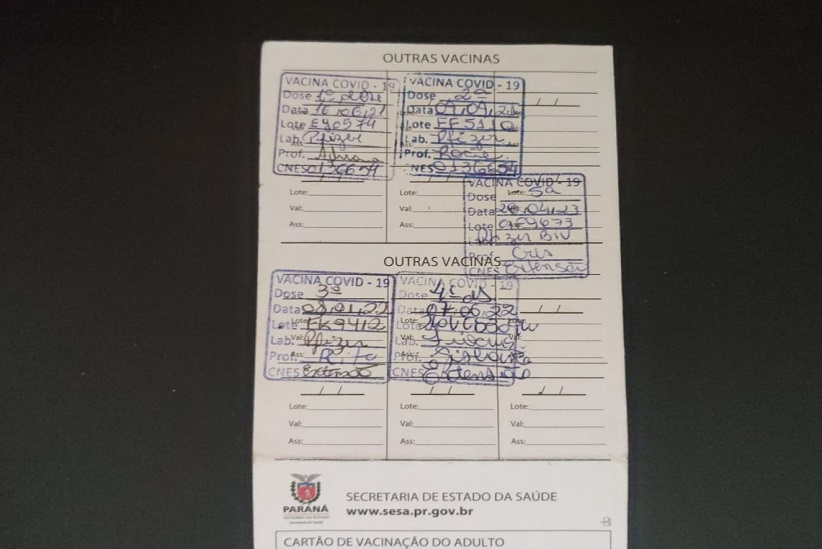 OUTRAS VACINAS
VACINA COVID - 19
Dose 1ª Dose
Data 16.06.21
Lote EY0574
Lab. Pfizer
Prof. Adriana
CNES 0136654
VACINA COVID - 19
Dose 2ª
Data 09.09.21
Lote FF5110
Lab. Pfizer
Prof.
CNES 0136654
VACINA COVID - 19
Dose 5ª
Data 04.23
Lote
Lab. Pfizer Biv
Prof. Cris
CNES Extensão
Lote: Lote:
Val: Val:
Ass: Ass:
OUTRAS VACINAS
VACINA COVID - 19
Dose 3ª
Data 08.01.22
Lote FK9412
Lab. Pfizer
Prof. Rita
CNES Extensão
VACINA COVID - 19
Dose 4ª
Data 07.06.22
Lote
Lab.
Prof.
CNES Extensão
Lote: Lote: Lote:
Val: Val: Val:
Ass: Ass: Ass:
PARANÁ
GOVERNO DO ESTADO
Secretaria da Saúde
SECRETARIA DE ESTADO DA SAÚDE
www.sesa.pr.gov.br
CARTÃO DE VACINAÇÃO DO ADULTO